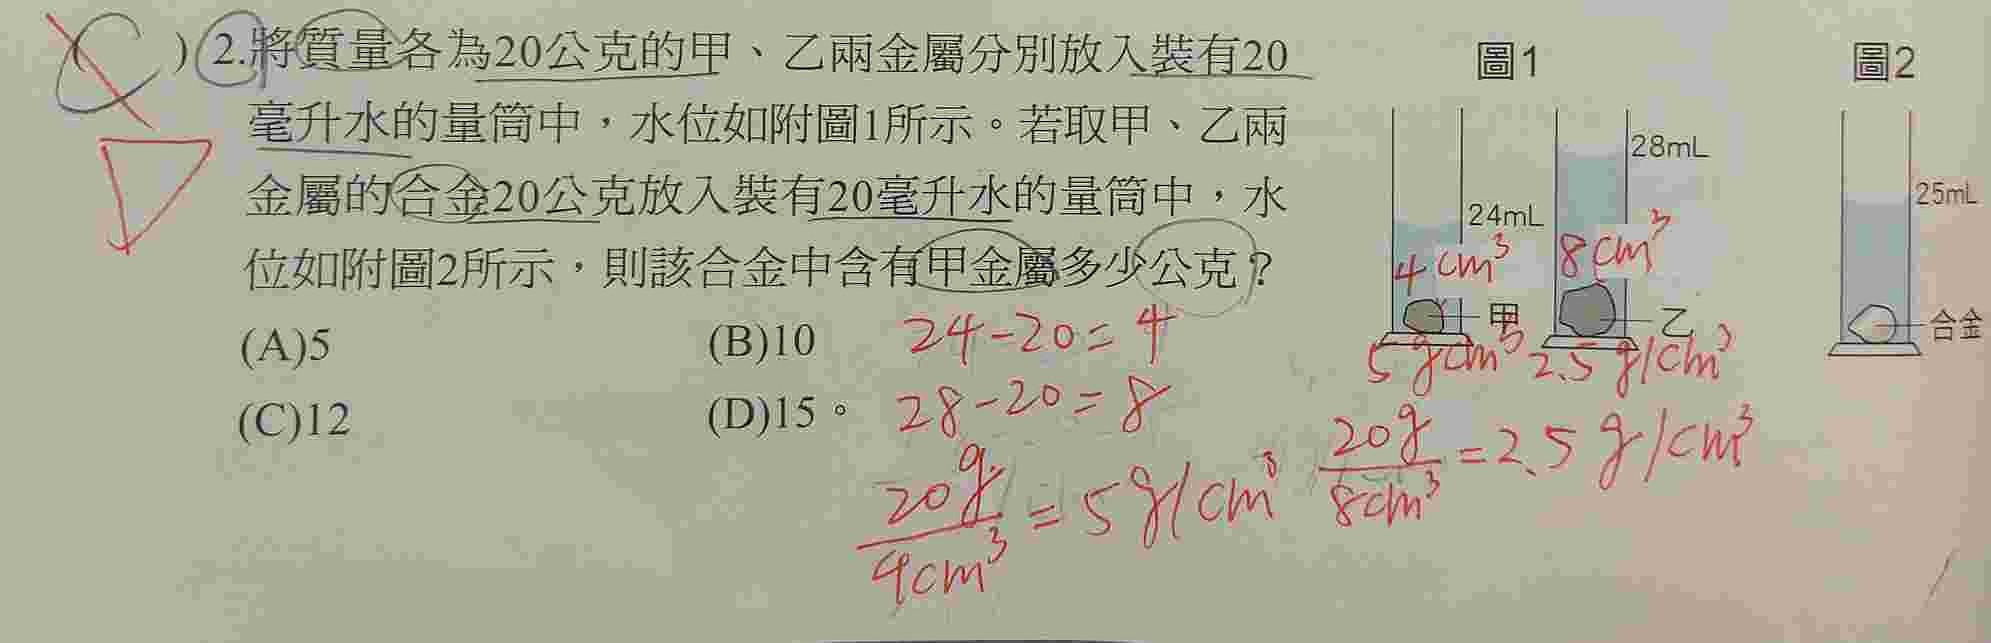 (C)2.將質量各為20公克的甲、乙兩金屬分別放入裝有20
毫升水的量筒中，水位如附圖1所示。若取甲、乙兩
金屬的合金20公克放入裝有20毫升水的量筒中，水
位如附圖2所示，則該合金中含有甲金屬多少公克？
(A)5
(B)10
(C)12
(D)15。
圖1
圖2
28mL
24mL
25mL
4cm³
8cm³
甲
乙
合金
5gcm³
2.5g/cm³
24-20=4
28-20=8
20g/4cm³=5g/cm³
20g/8cm³=2.5g/cm³